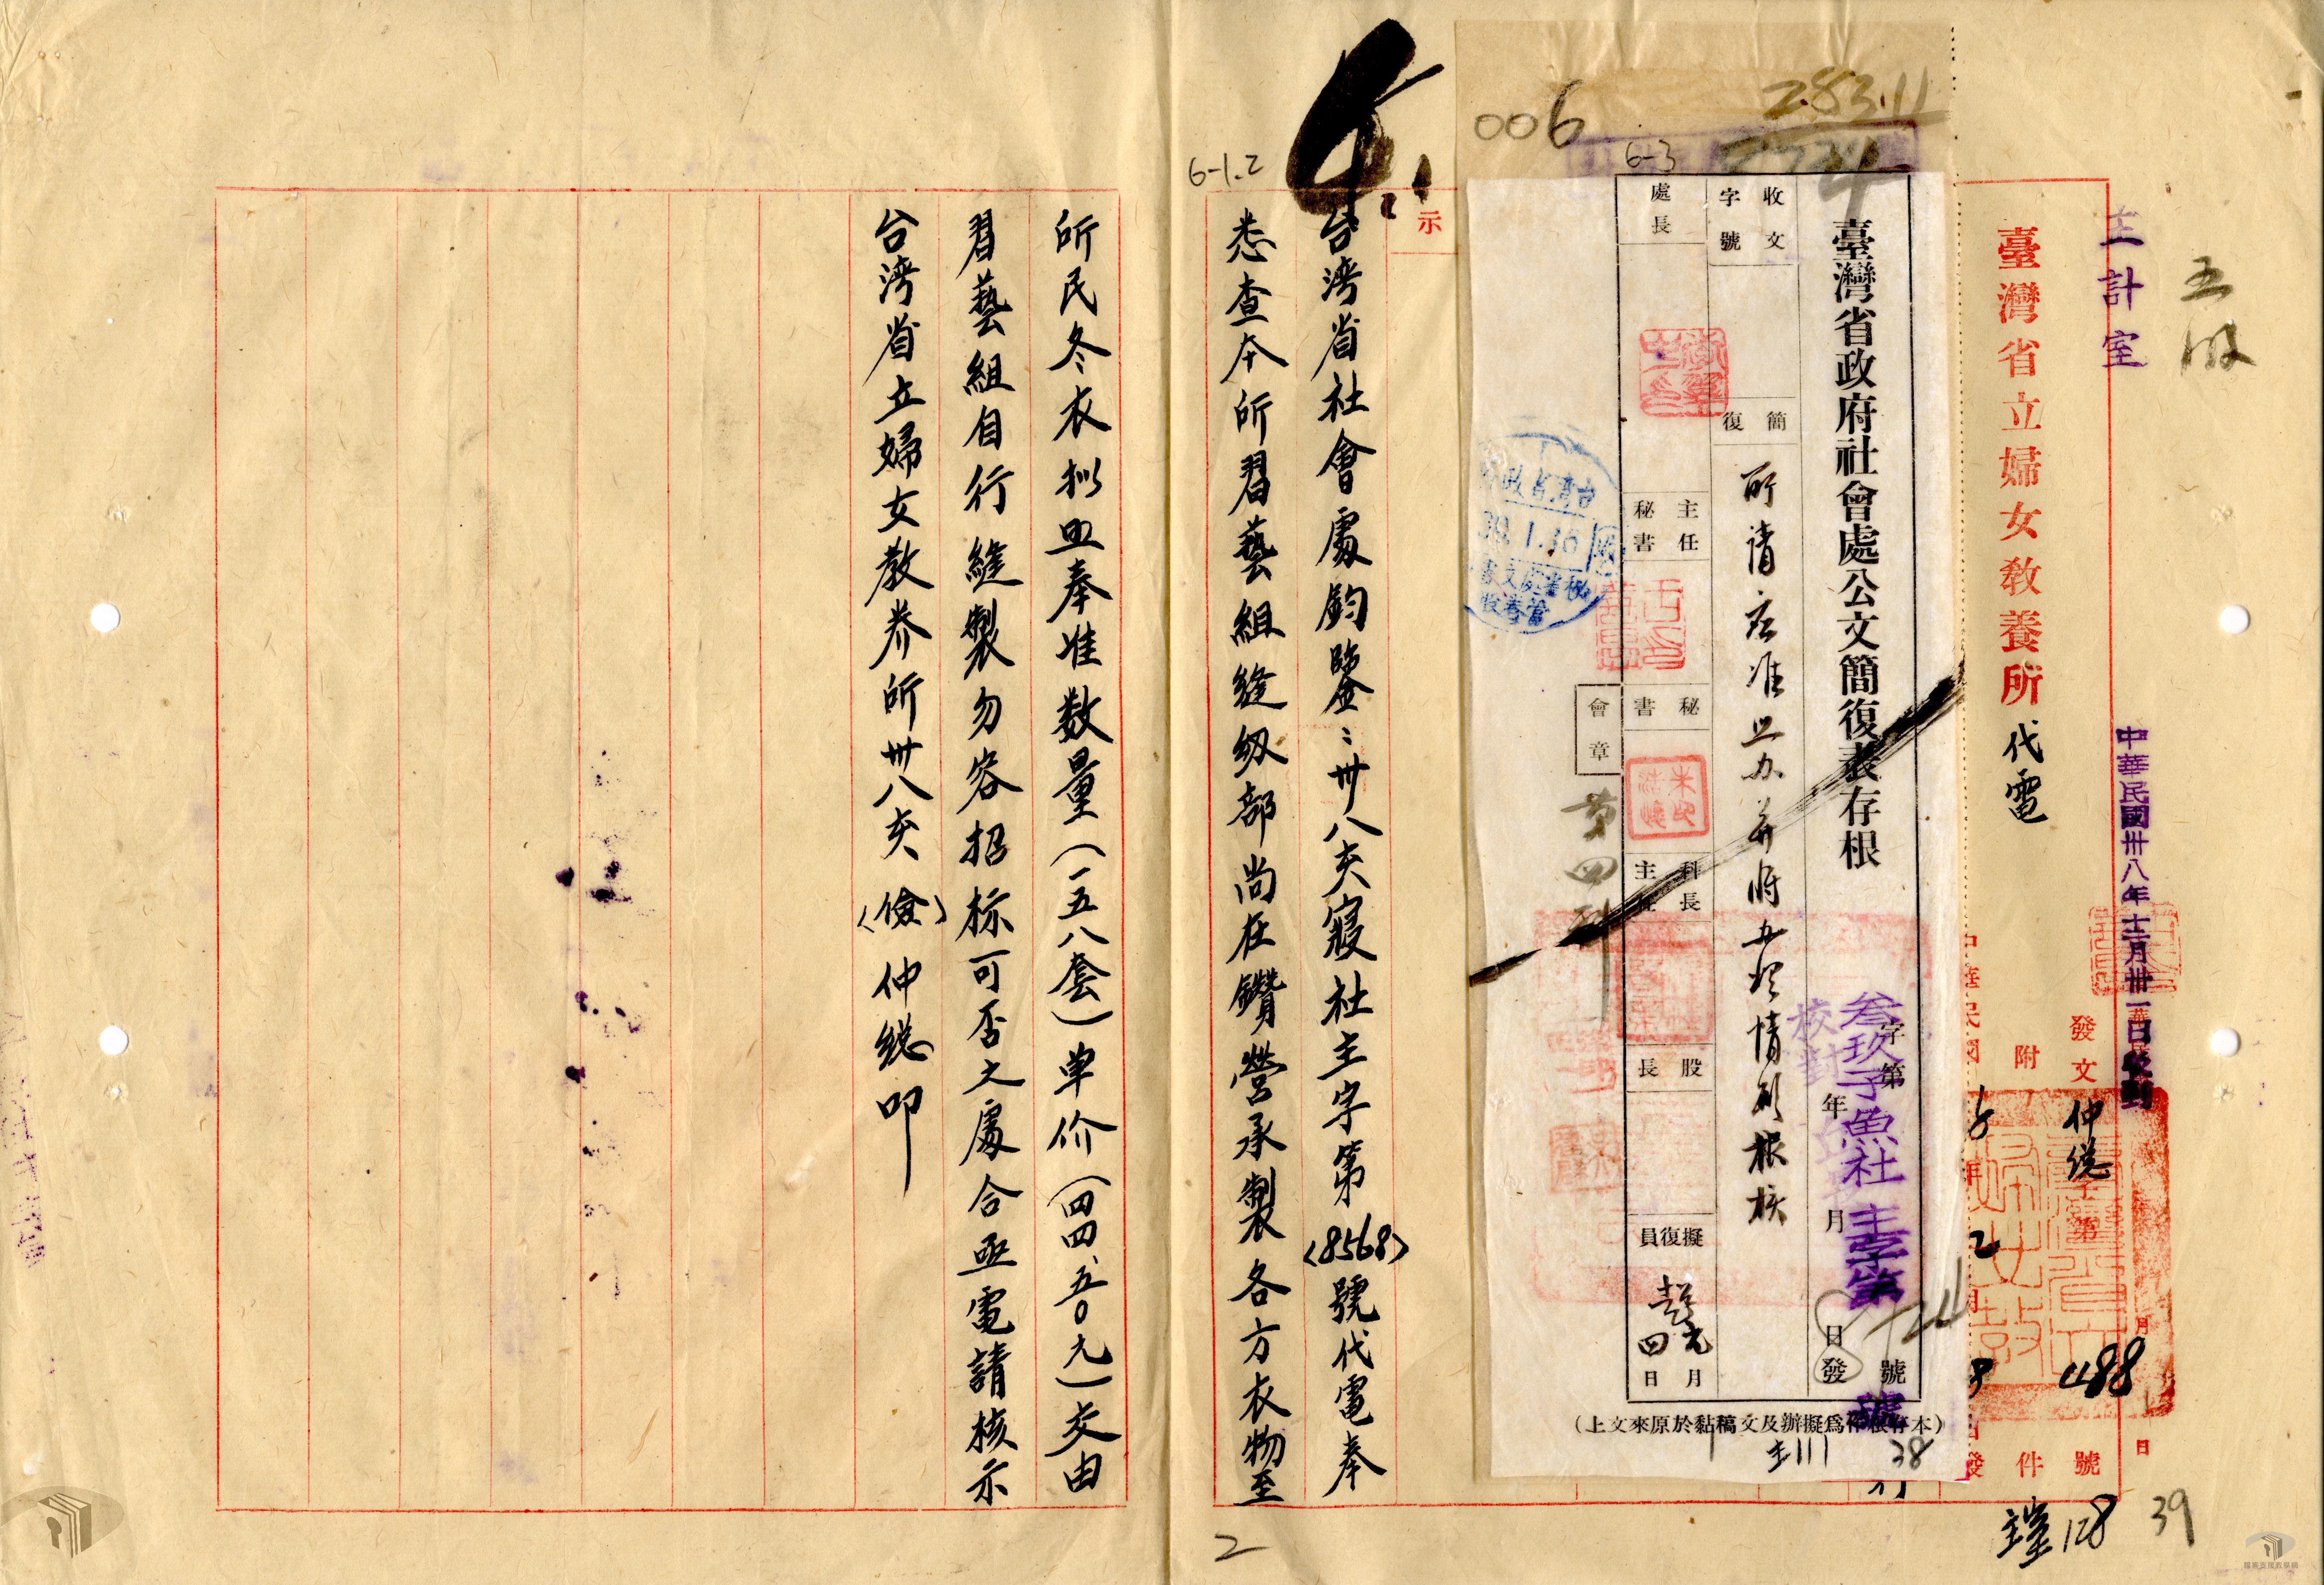 五股
主計室
中華民國卅八年十二月卅一日收到
臺灣省立婦女教養所代電
發文 仲總字第488號
附 件
39
128
283.11
006
6-3
臺灣省政府社會處公文簡復表存根
字第 號
年 月 日發
叁玖子魚社主字第 號
校對
收文
字號
簡復
所請應准照办并將办理情形報核
處長
主任秘書
秘書
科長
主任
股長
擬復員
月 日
會章
第四科
39.1.16
(本存根作為擬辦及文稿黏於原來文上)
38
6-1.2
示
台湾省社會處鈞鑒:卅八亥寢社主字第(8568)號代電奉
悉查本所習藝組縫級部尚在鑽營承製各方衣物至
2
所民冬衣拟照奉准数量(一五八套)单价(四四、五〇元)交由
習藝組自行縫製勿容招标可否之處合亟電請核示
台湾省立婦女教养所卅八亥(儉)仲總叩